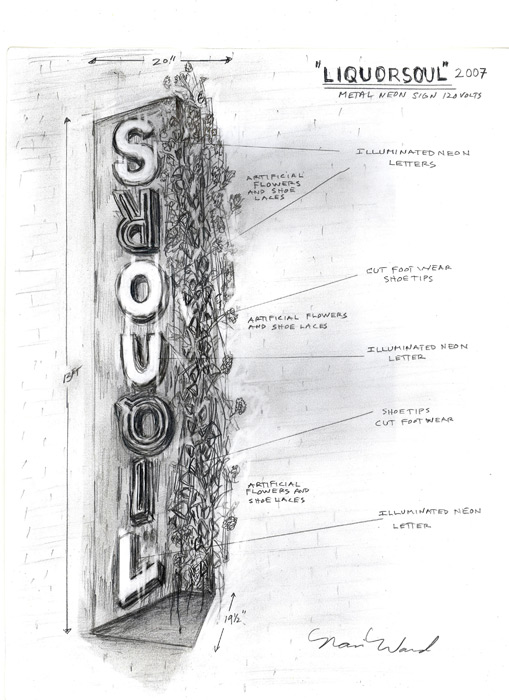 20"
"LIQUORSOUL" 2007
METAL NEON SIGN 120 VOLTS
ILLUMINATED NEON
LETTERS
ARTIFICIAL
FLOWERS
AND SHOE
LACES
CUT FOOT WEAR
SHOE TIPS
ARTIFICIAL FLOWERS
AND SHOE LACES
ILLUMINATED NEON
LETTER
13FT
SHOE TIPS
CUT FOOT WEAR
ARTIFICIAL
FLOWERS AND
SHOE LACES
ILLUMINATED NEON
LETTER
19½"
S
R
O
U
Q
I
L
Nari Ward